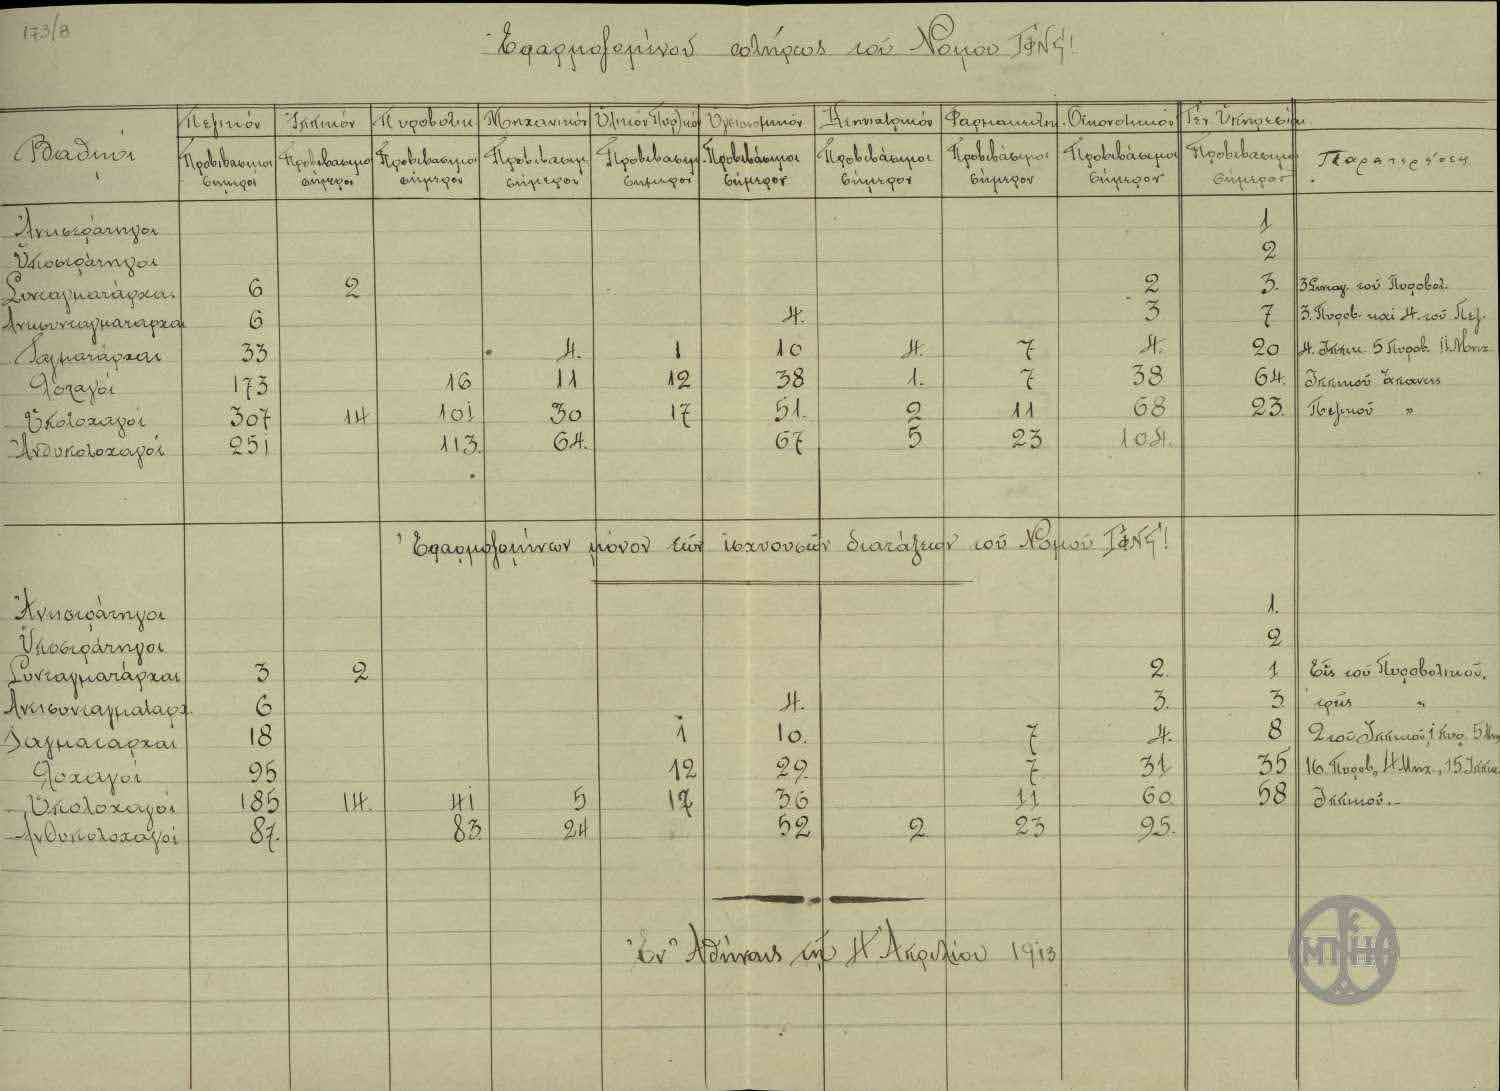 173/8
Ἐφαρμοζομένου τοῦ Νόμου ΓΦΝϚ!
Βαθμοί Πεζικόν Ἱππικόν Πυροβολικ Μηχανικόν Ὑλικὸν Πυρ/κοῦ Ὑγειονομικόν Κτηνιατρικόν Φαρμακευτικ. Οἰκονομικόν Γεν. Ὑπηρεσίαι Παρατηρήσεις
Προβιβάσιμοι Προβιβάσιμοι Προβιβάσιμοι Προβιβάσιμ. Προβιβάσιμ Προβιβάσιμοι Προβιβάσιμοι Προβιβάσιμοι Προβιβάσιμοι Προβιβάσιμοι
σήμερον σήμερον σήμερον σήμερον σήμερον σήμερον σήμερον σήμερον σήμερον σήμερον
Ἀντιστράτηγοι 1
Ὑποστράτηγοι 2
Συνταγματάρχαι 6 2 2 3 3 Συνταγ. τοῦ Πυροβολ.
Ἀντισυνταγματάρχαι 6 4. 3 7 3. Πυροβ. καὶ 4. τοῦ Πεζ.
Ταγματάρχαι 33 4. 1 10 4. 7 4. 20 4. Ἱππικ. 5 Πυροβ. 11. Μηχ.
Λοχαγοί 173 16 11 12 38 1. 7 38 64. Ἱππικοῦ ἅπαντες
Ὑπολοχαγοί 307 14 101 30 17 51. 2 11 68 23. Πεζικοῦ "
Ἀνθυπολοχαγοί 251 113. 64. 67 5 23 104.
Ἐφαρμοζομένων μόνον τῶν ἰσχυουσῶν διατάξεων τοῦ Νόμου ΓΦΝϚ!
Ἀντιστράτηγοι 1.
Ὑποστράτηγοι 2
Συνταγματάρχαι 3 2 2. 1 Εἷς τοῦ Πυροβολικοῦ.
Ἀντισυνταγματάρχ 6 4. 3. 3 τρεῖς "
Ταγματάρχαι 18 1 10. 7 4. 8 2 τοῦ Ἱππικοῦ, 1 πυρ. 5 Μηχ
Λοχαγοί 95 12 29. 7 31 35 16. Πυροβ., 4 Μηχ., 15 Ἱππικ
Ὑπολοχαγοί 185 14. 41 5 17 36 11 60. 58 Ἱππικοῦ.
Ἀνθυπολοχαγοί 87. 83. 24 52 2. 23 95.
Ἐν Ἀθήναις τῇ 4 Ἀπριλίου 1913